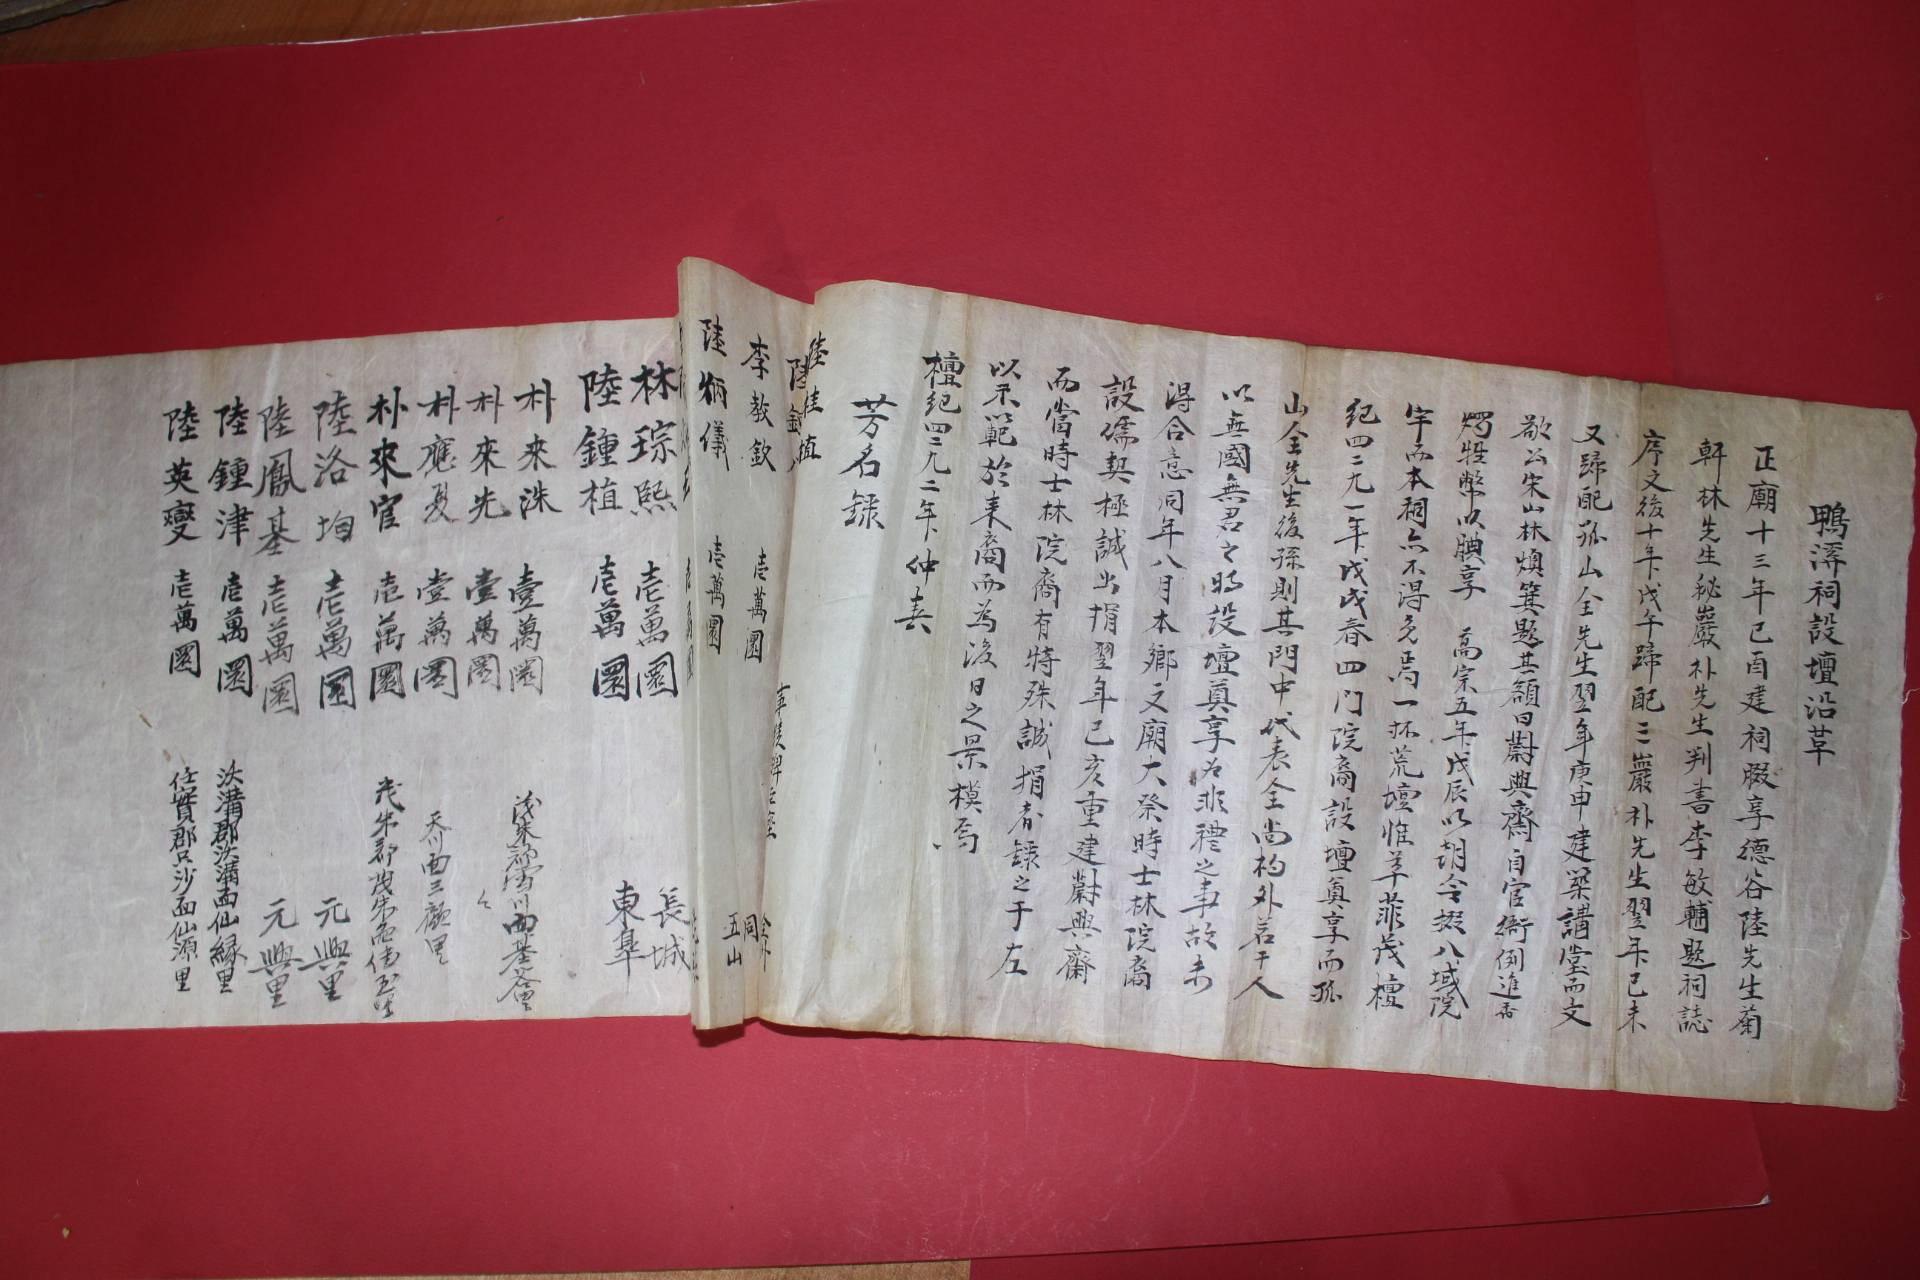 鴨濟祠設壇沿革
正廟十三年己酉建祠腏享德谷陸先生菊
軒林先生秘巖朴先生判書李敏輔題祠誌
序文後十年戊午躋配三巖朴先生翌年己未
又躋配孤山全先生翌年庚申建築講堂而文
敬公宋山林煥箕題其額曰蔚興齋自官衙例進香
燭牲幣以腆享 高宗五年戊辰以胡令掇八域院
宇而本祠亦不得免焉一抔荒壇惟草菲茂檀
紀四二九一年戊戌春四門院裔設壇奠享而孤
山全先生後孫則其門中代表全尚杓外若干人
以無國無君之時設壇奠享爲非禮之事故未
得合意同年八月本鄉文廟大祭時士林院裔
設儒契極誠出捐翌年己亥重建蔚興齋
而當時士林院裔有特殊誠捐者錄之于左
以示範於來裔而為後日之景模焉
檀紀四二九二年仲春
芳名錄
陸佳植
李教欽 壱萬圜 同
陸炳儀 壱萬圜 五山
林琮熙 壱萬圜 長城
陸鍾植 壱萬圜 東皐
朴來洙 壹萬圜
朴來先 壹萬圜
朴應夏 壹萬圜 天川面三顧里
朴來官 壱萬圜
陸洛均 壱萬圜 元興里
陸鳳基 壱萬圜 元興里
陸鍾津 壱萬圜 沃溝郡沃溝面仙緣里
陸英燮 壱萬圜 任實郡只沙面仙源里